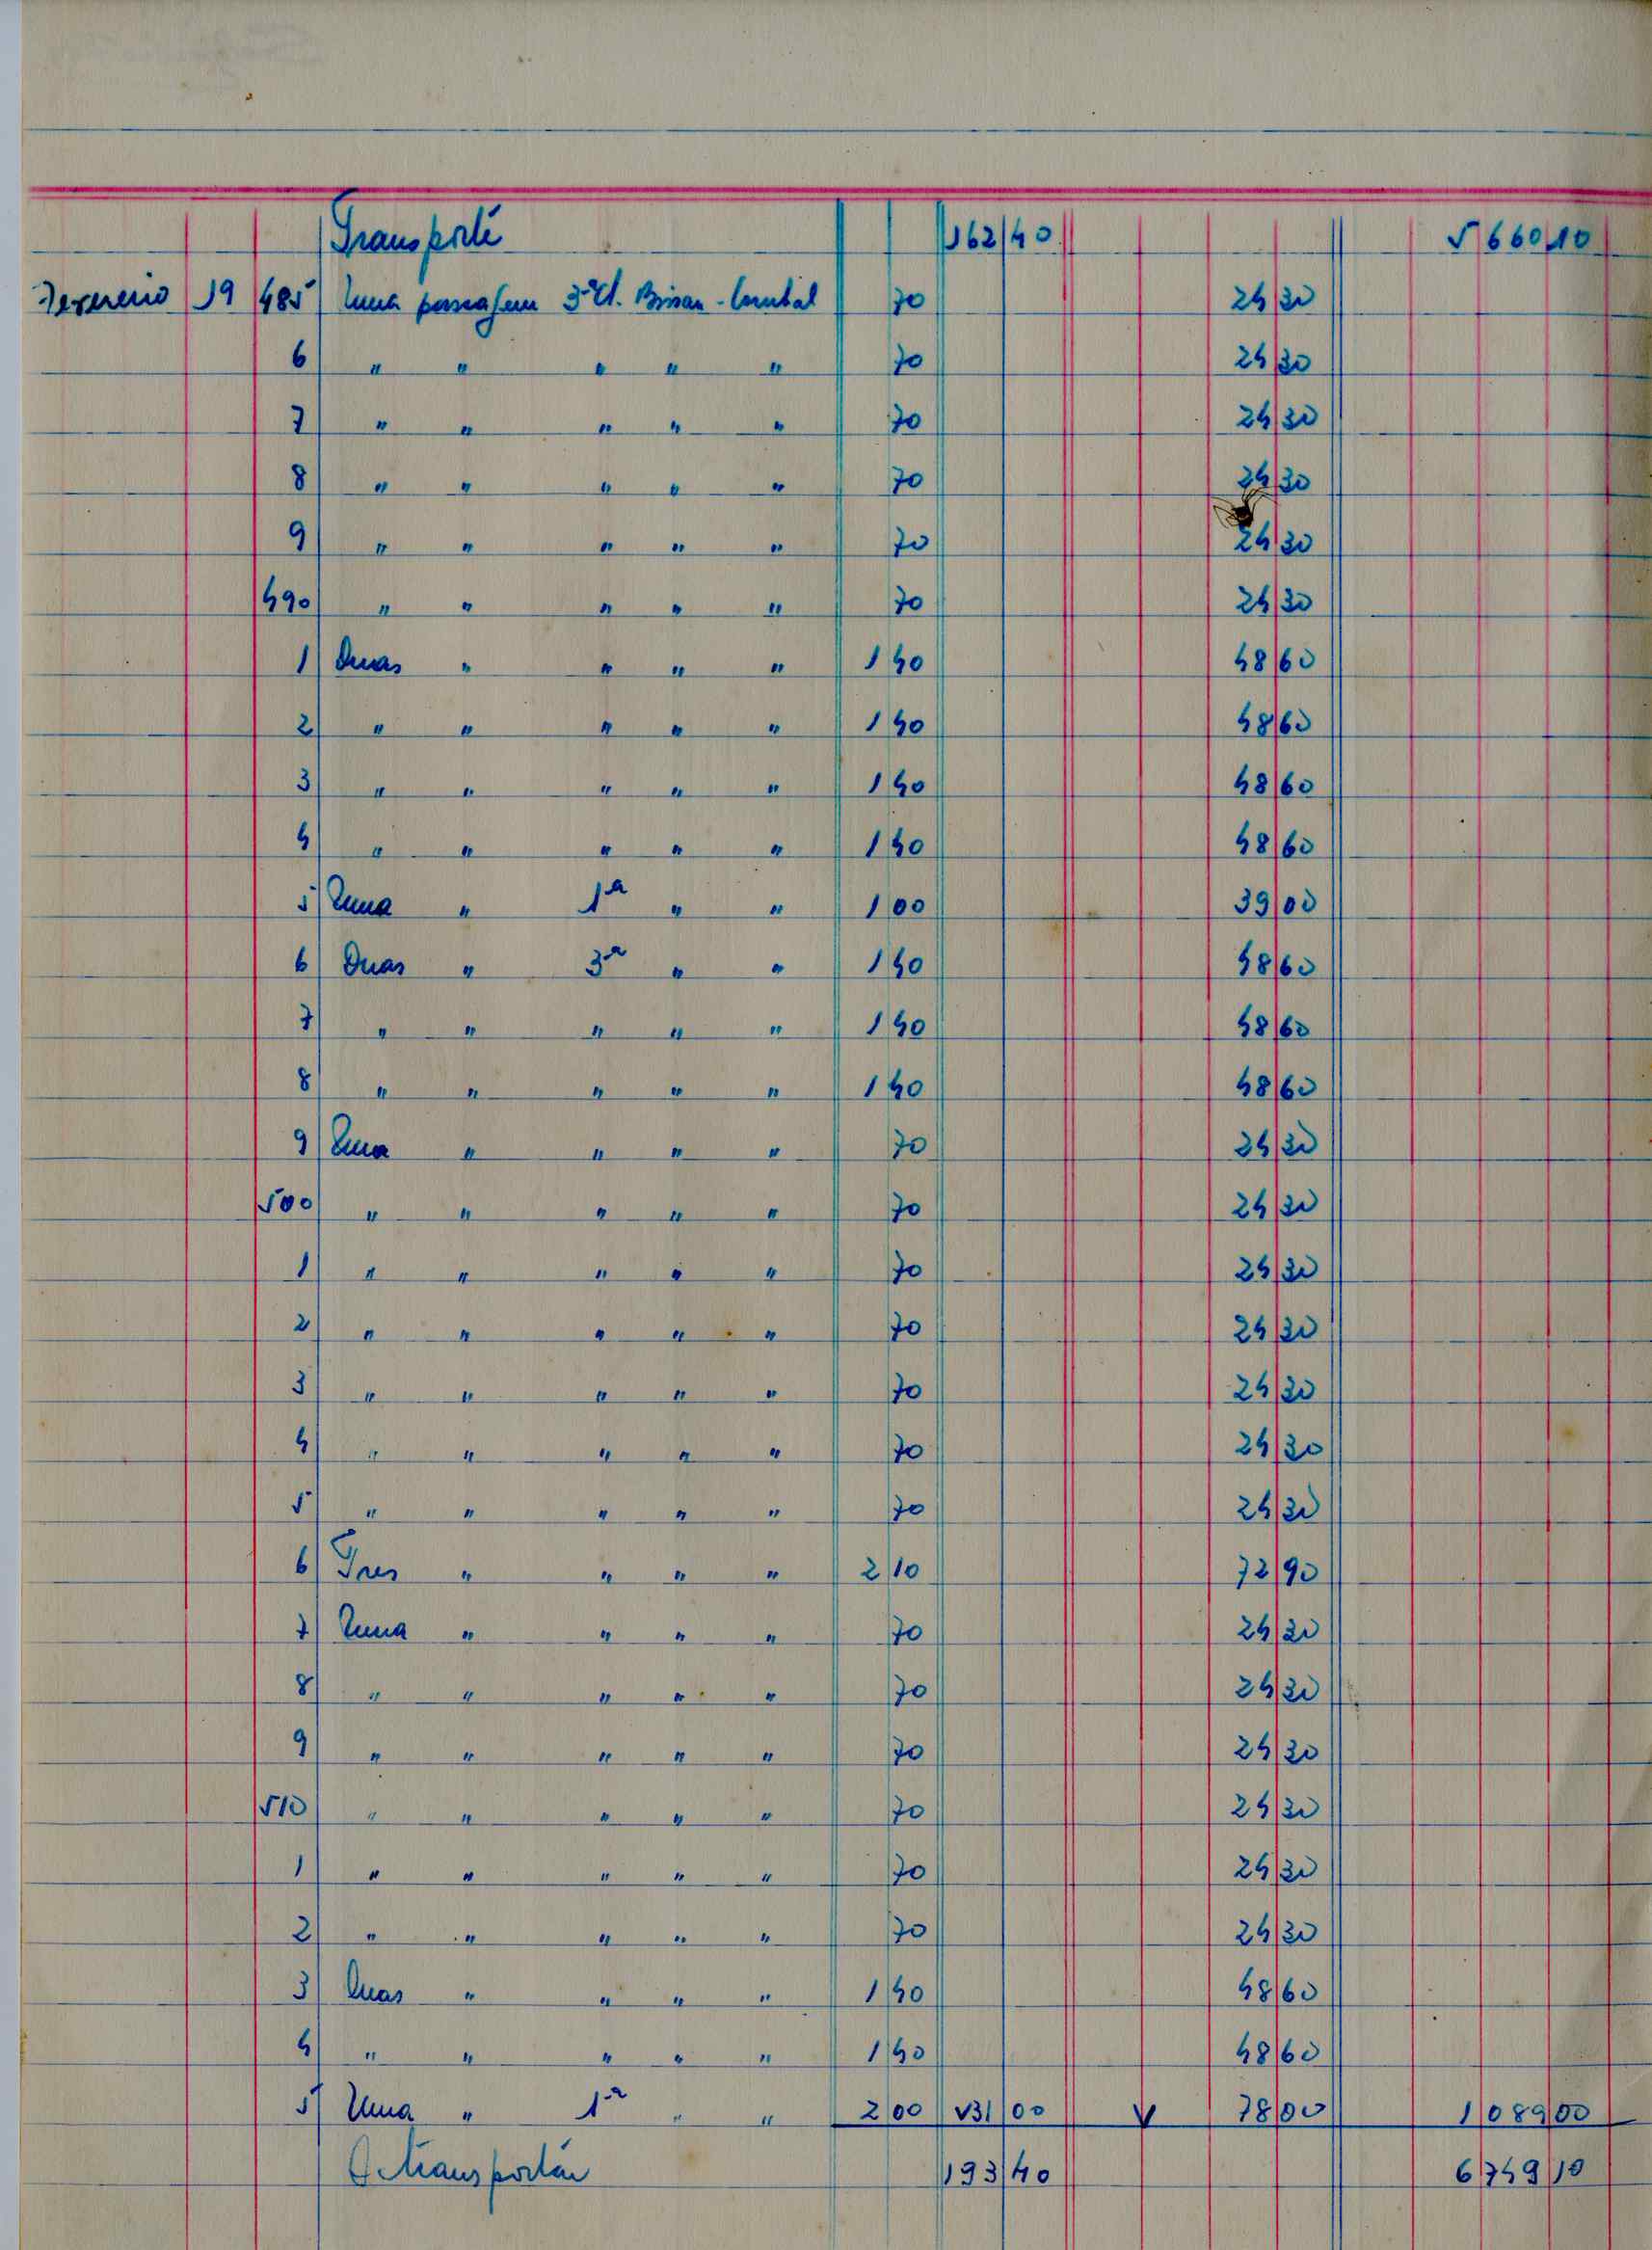 Transporte 162 40 5 660 10
Fevereiro 19 485 Uma passagem 3ª Cl. Bissau - Cumbal 70 24 30
6 " " " " " 70 24 30
7 " " " " " 70 24 30
8 " " " " " 70 24 30
9 " " " " " 70 24 30
490 " " " " " 70 24 30
1 Duas " " " " 1 40 48 60
2 " " " " " 1 40 48 60
3 " " " " " 1 40 48 60
4 " " " " " 1 40 48 60
5 Uma " 1ª " " 1 00 39 00
6 Duas " 3ª " " 1 40 48 60
7 " " " " " 1 40 48 60
8 " " " " " 1 40 48 60
9 Uma " " " " 70 24 30
500 " " " " " 70 24 30
1 " " " " " 70 24 30
2 " " " " " 70 24 30
3 " " " " " 70 24 30
4 " " " " " 70 24 30
5 " " " " " 70 24 30
6 Tres " " " " 2 10 72 90
7 Uma " " " " 70 24 30
8 " " " " " 70 24 30
9 " " " " " 70 24 30
510 " " " " " 70 24 30
1 " " " " " 70 24 30
2 " " " " " 70 24 30
3 Duas " " " " 1 40 48 60
4 " " " " " 1 40 48 60
5 Uma " 1ª " " 2 00 V31 00 V 78 00 1 089 00
A transportar 193 40 6 749 10